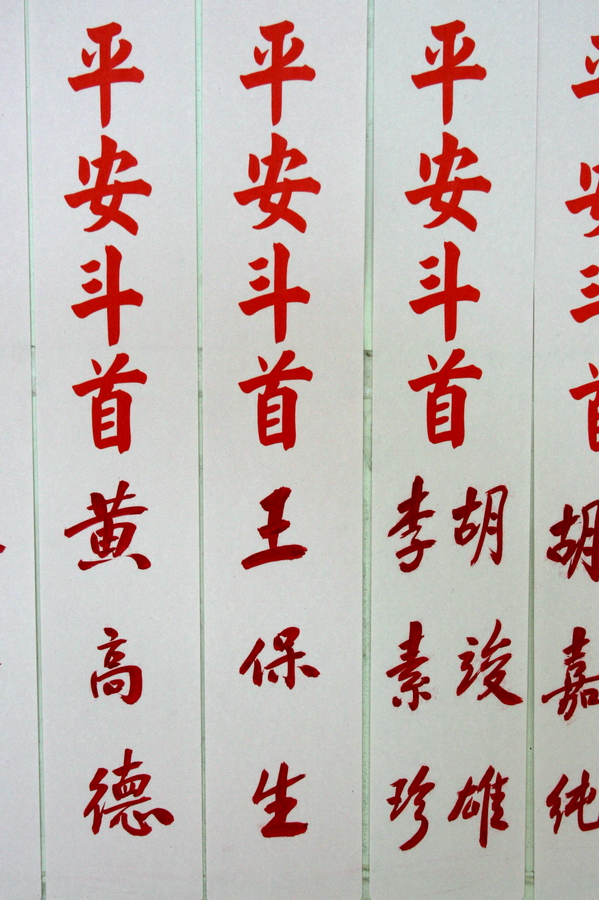 平安斗首
胡嘉純
平安斗首
胡竣雄
李素珍
平安斗首
王保生
平安斗首
黄高德